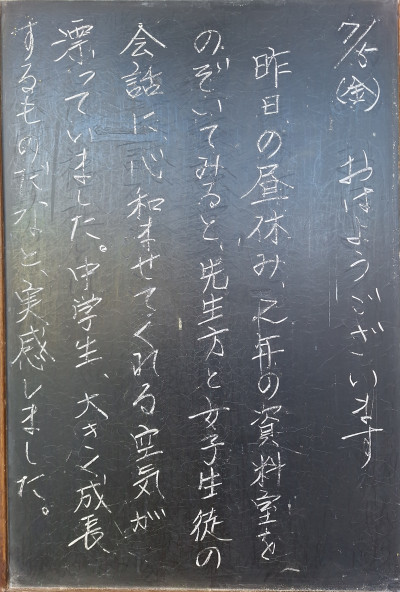 7/5(金) おはようございます
昨日の昼休み、2年の資料室を
のぞいてみると、先生方と女子生徒の
会話に心和ませてくれる空気が
漂っていました。中学生、大きく成長
するものだなと、実感しました。